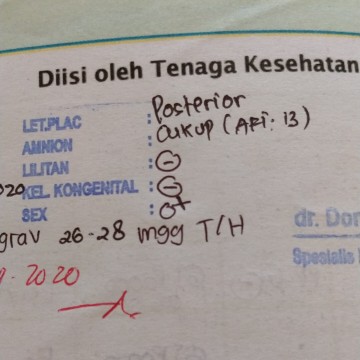 Diisi oleh Tenaga Kesehatan
LET.PLAC : Posterior
AMNION : Cukup (AFI: 13)
LILITAN : ⊖
020 KEL. KONGENITAL : ⊖
SEX :
grav 26-28 mgg T/H
dr. Don
Spesialis
2020